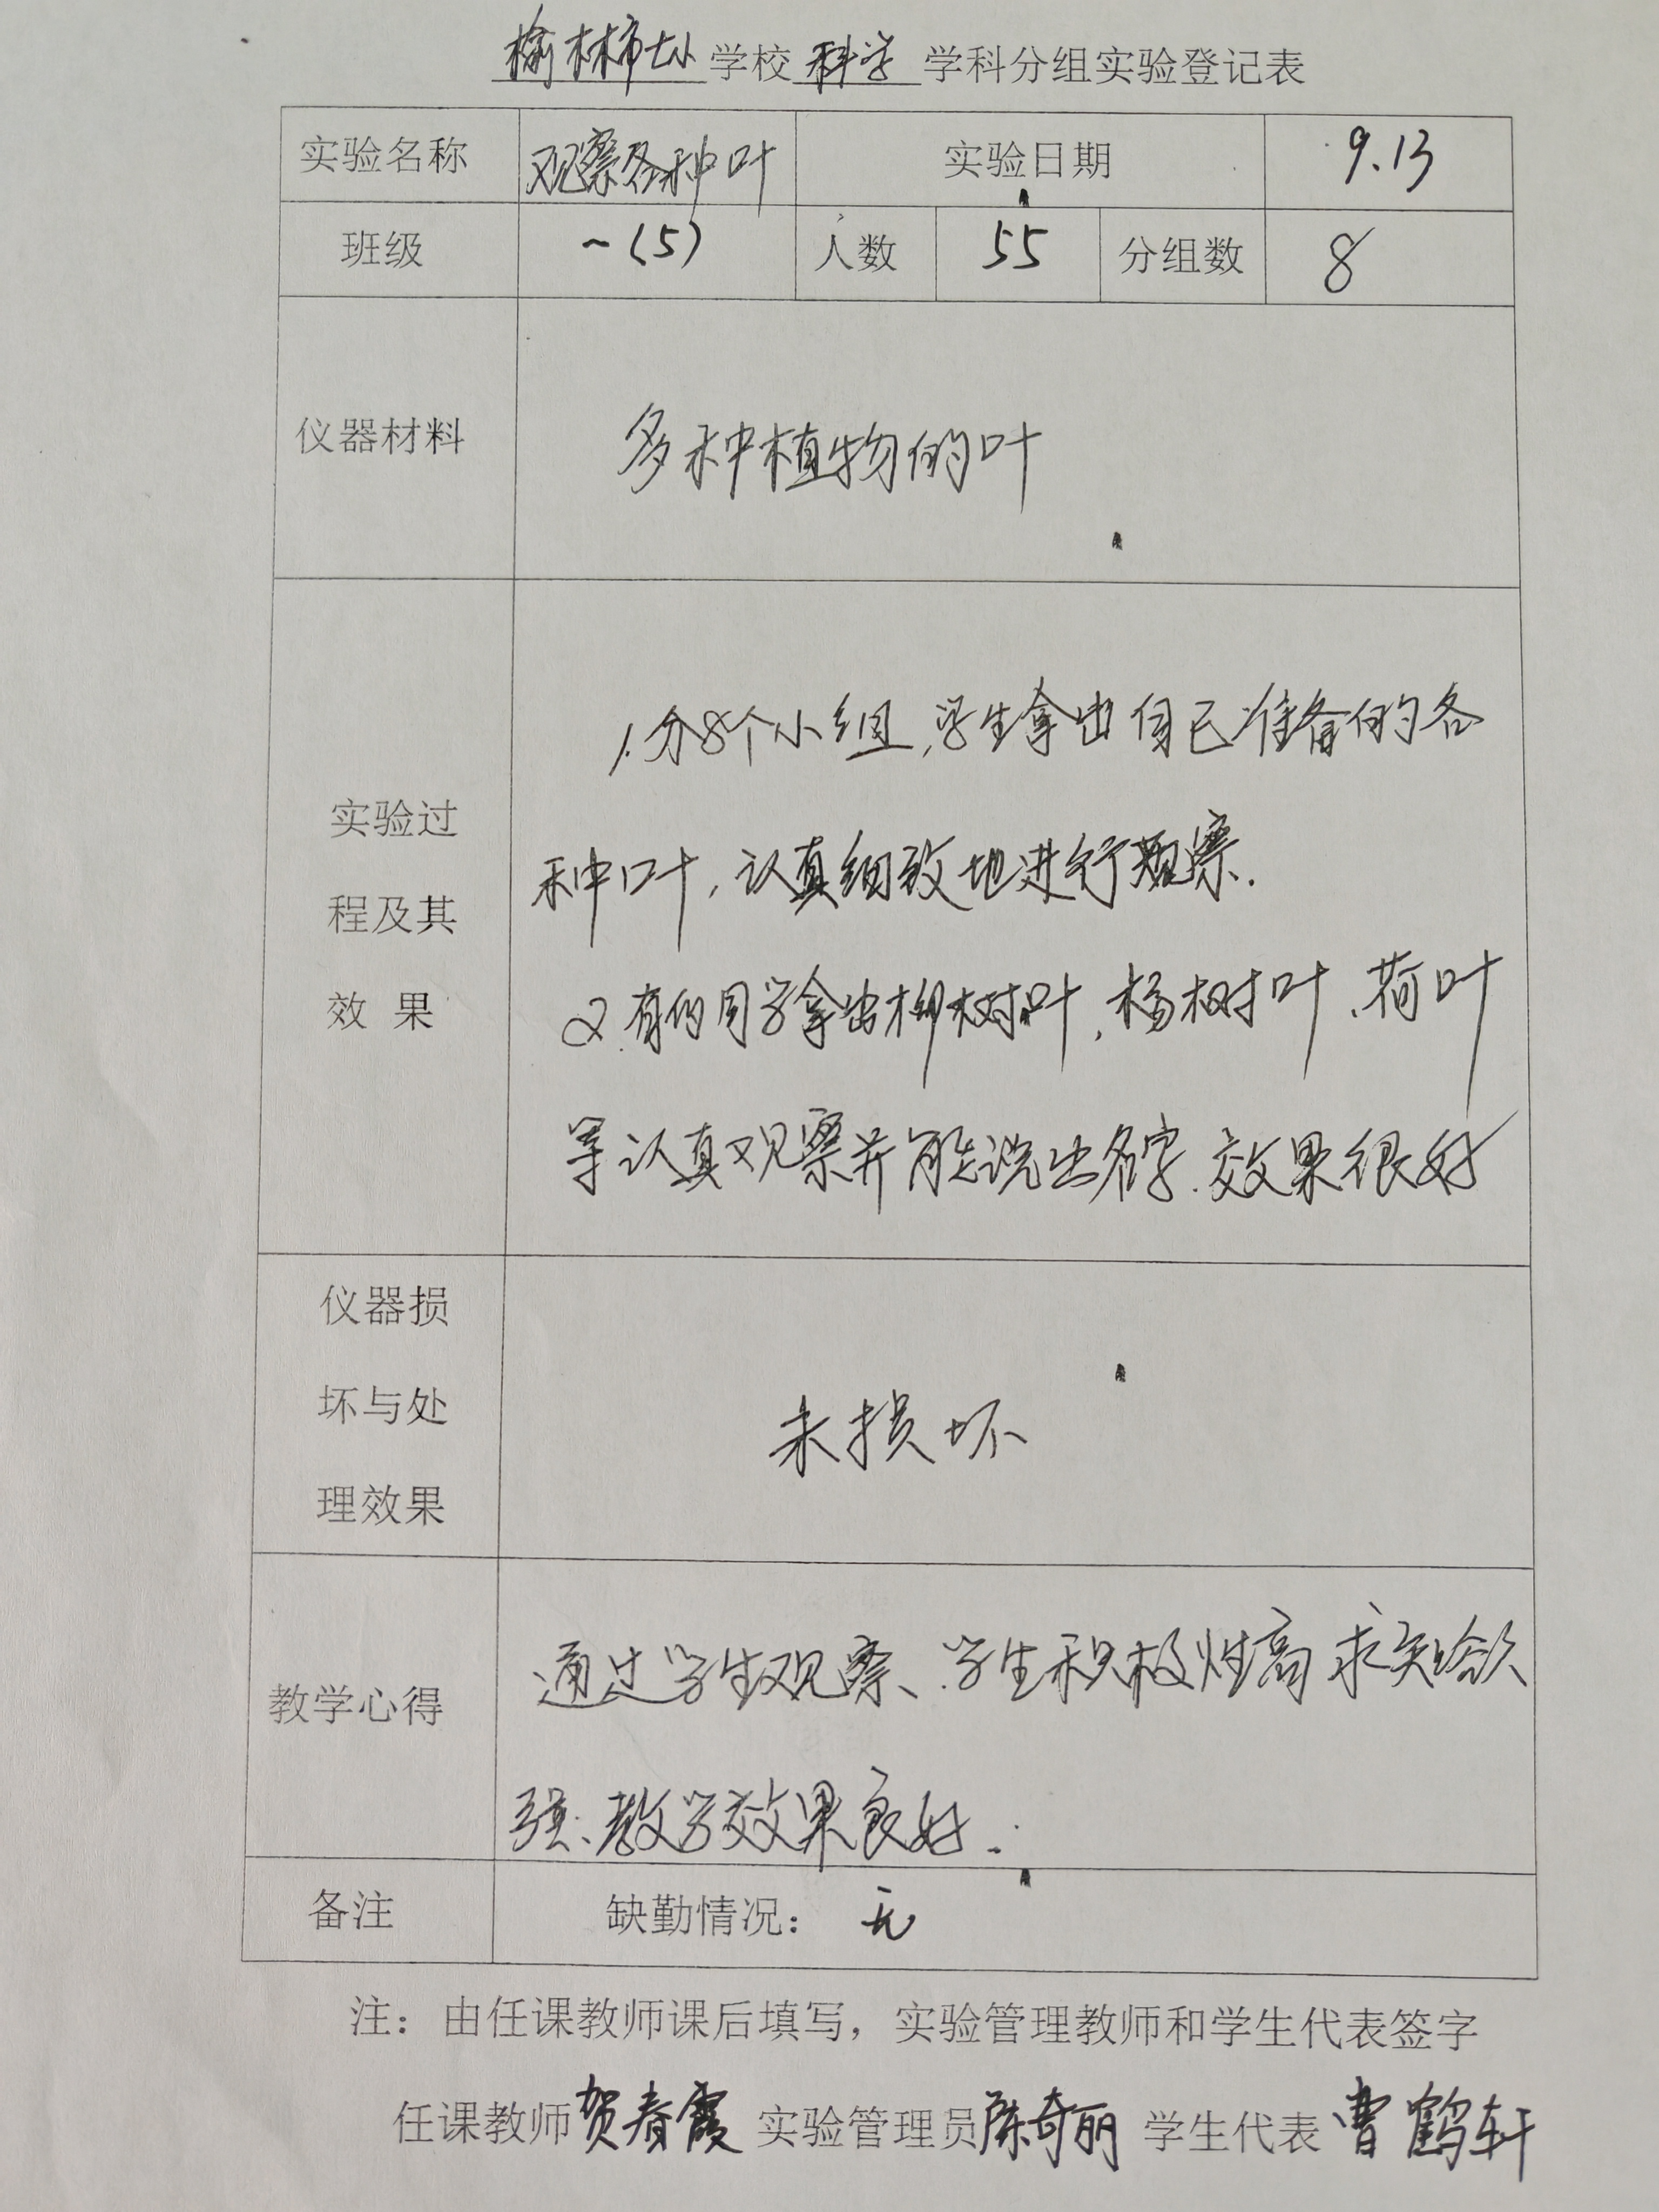 榆林市 学校 科学 学科分组实验登记表
实验名称 观察各种叶 实验日期 9.13
班级 一(5) 人数 55 分组数 8
仪器材料 多种植物的叶
实验过
程及其
效 果
1.分8个小组,学生拿出自己准备的各
种叶,认真细致地进行观察.
2.有的同学拿出柳树叶,杨树叶、荷叶
等认真观察并能说出名字.效果很好
仪器损
坏与处
理效果
未损坏
教学心得
通过学生观察、学生积极性高求知欲
强、教学效果良好.
备注 缺勤情况: 无
注:由任课教师课后填写,实验管理教师和学生代表签字
任课教师贺春霞 实验管理员陈奇丽 学生代表 曹鹤轩